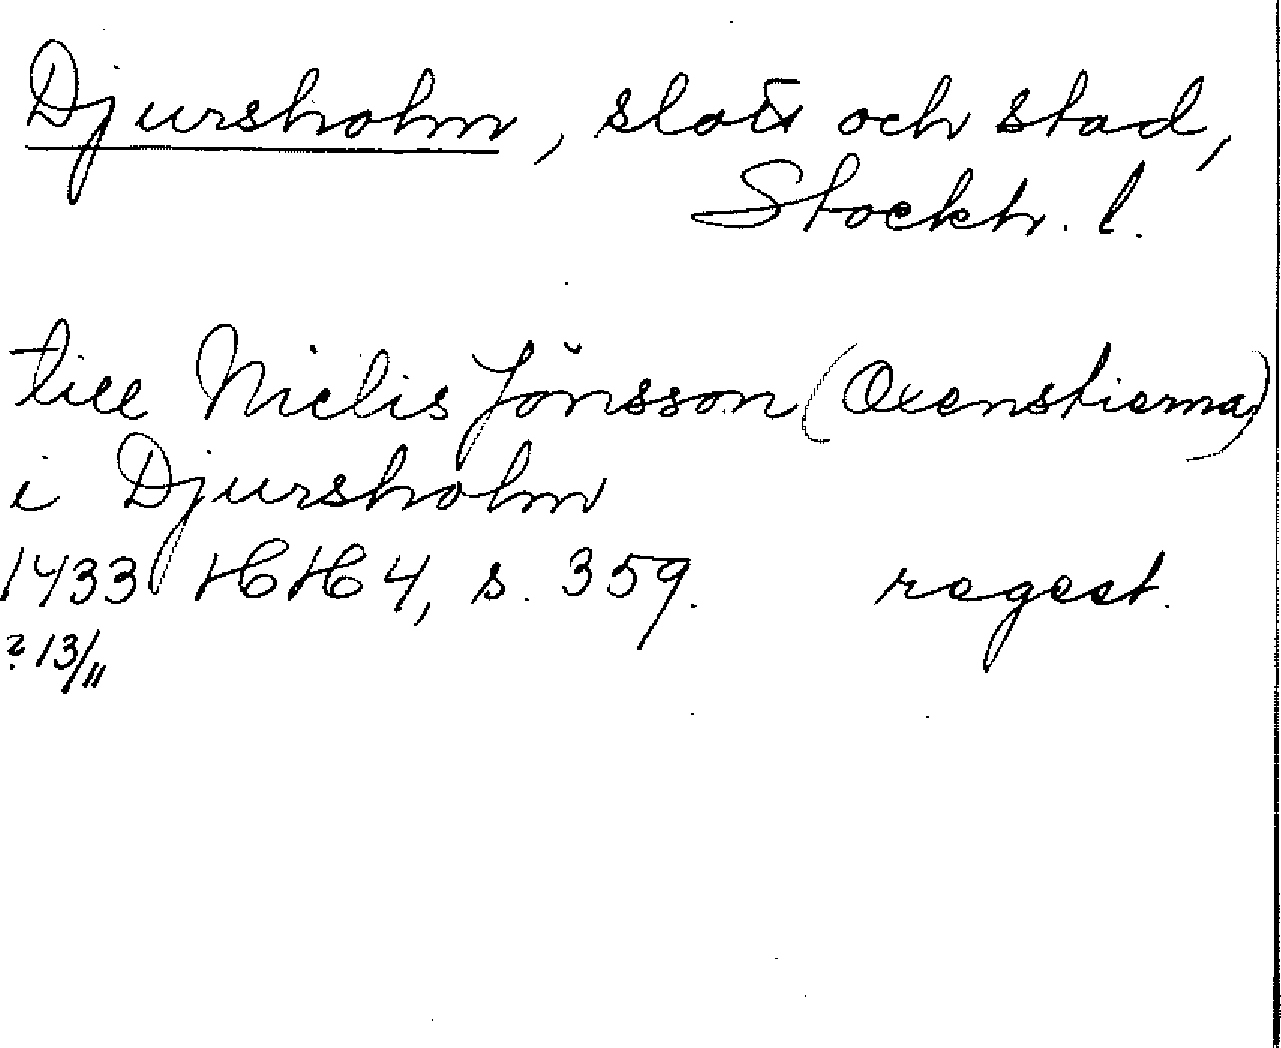 Djursholm, slott och stad,
Stockh. l.
till Nielis Jönsson (Oxenstierna)
i Djursholm
1433 HH 4, s. 359. regest.
? 13/11